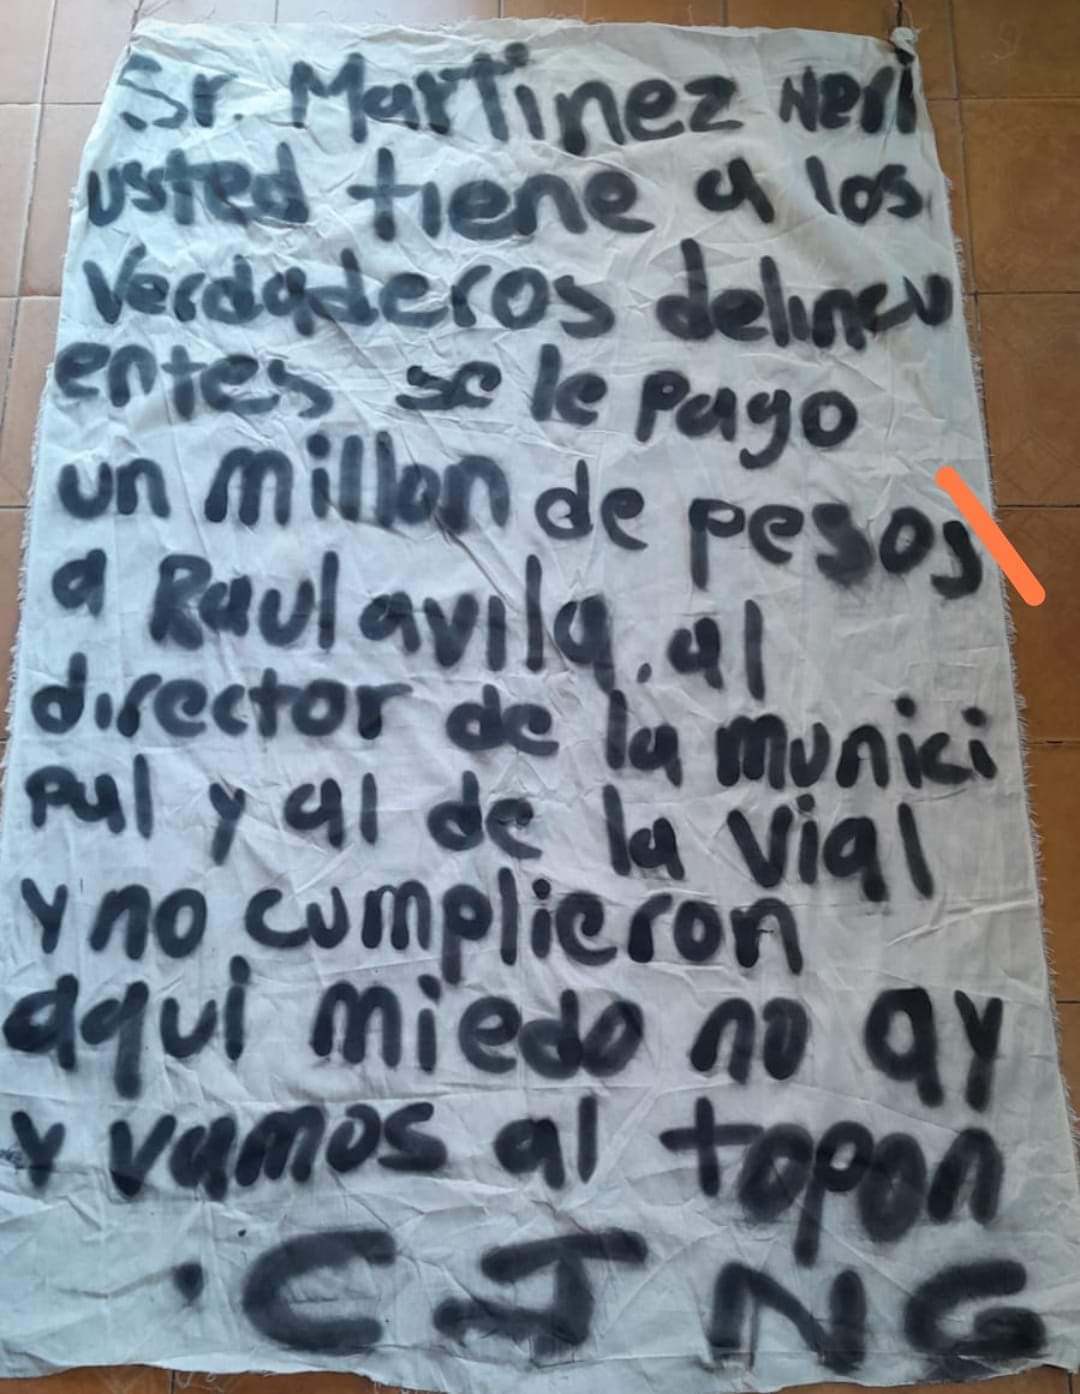 Sr. Martinez Neri
usted tiene a los
verdaderos delincu
entes se le pago
un millon de pesos
a Raul avila. al
director de la munici
pal y al de la vial
y no cumplieron
aqui miedo no ay
y vamos al topon
CJNG